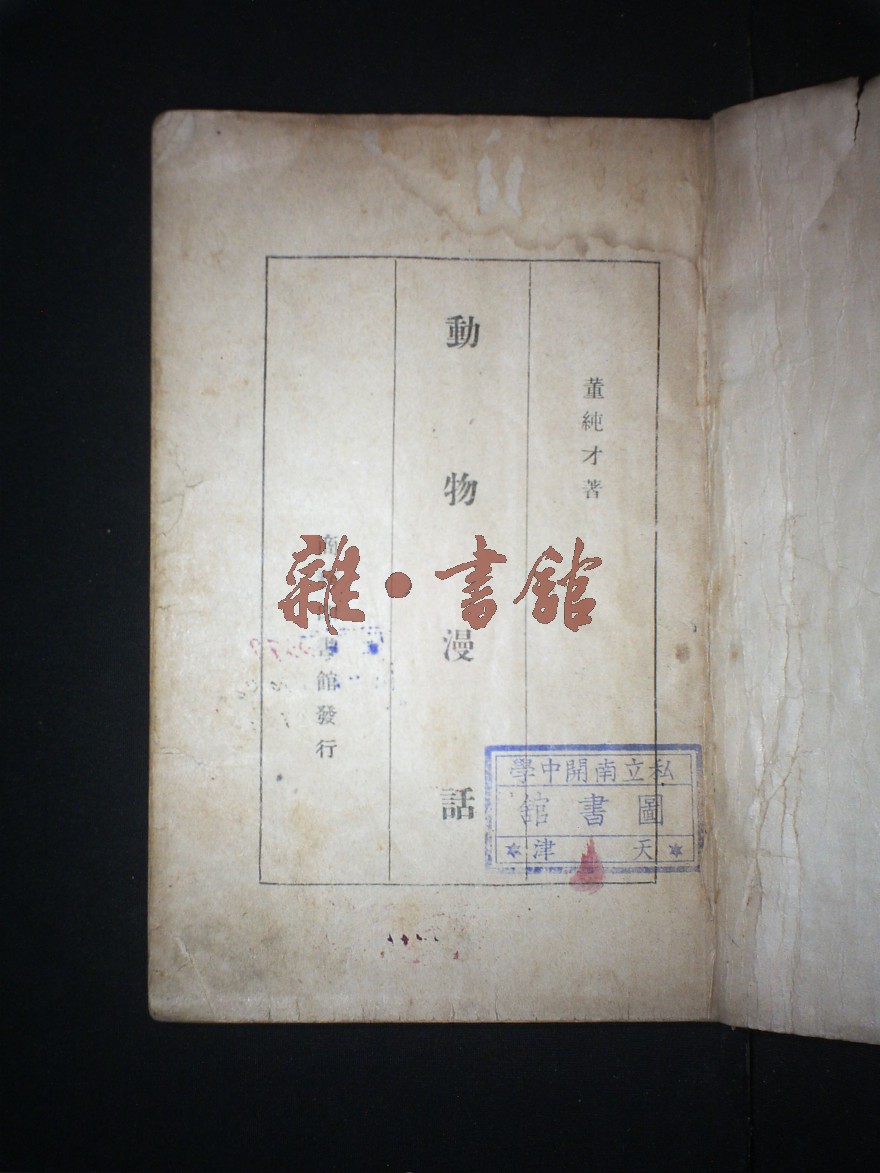 董純才著
動物漫話
商務印書館發行
雜·書館
私立南開中學
圖書館
天津